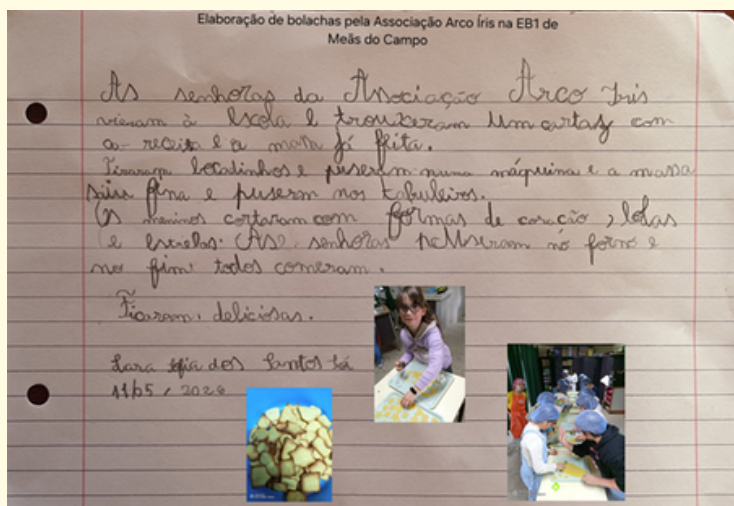 Elaboração de bolachas pela Associação Arco Íris na EB1 de
Meãs do Campo
As senhoras da Associação Arco Iris
vieram à escola e trouxeram um cartaz com
a receita e a massa já feita.
Tiraram bocadinhos e puseram numa máquina e a massa
saiu fina e puseram nos tabuleiros.
Os meninos cortaram com formas de coração, bolas
e estrelas. As senhoras puseram no forno e
no fim todos comeram.
Ficaram deliciosas.
Lara dos Santos Sá